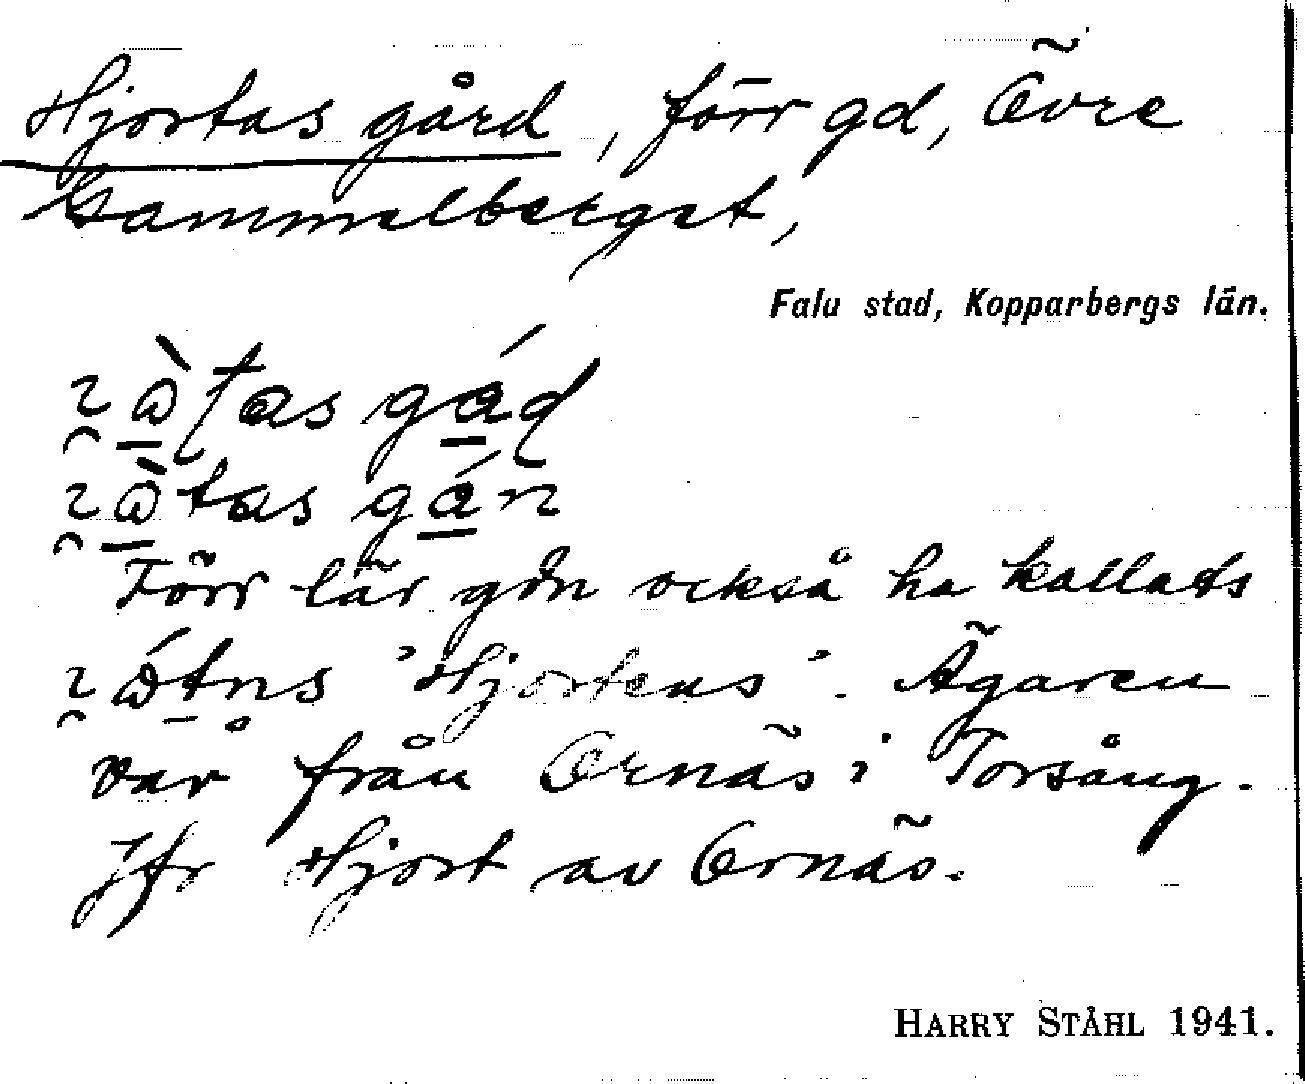 Hjortas gård, förr gd, Övre
Gammelberget,
Falu stad, Kopparbergs län.
Förr lär gdn också ha kallats
"Hjortens". Ägaren
var från Ornäs i Torsång.
Jfr Hjort av Ornäs.
HARRY STÅHL 1941.